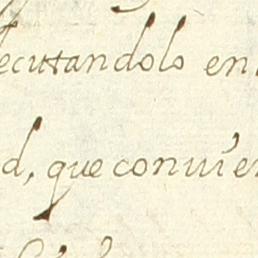 ecutandolo en
d, que convie